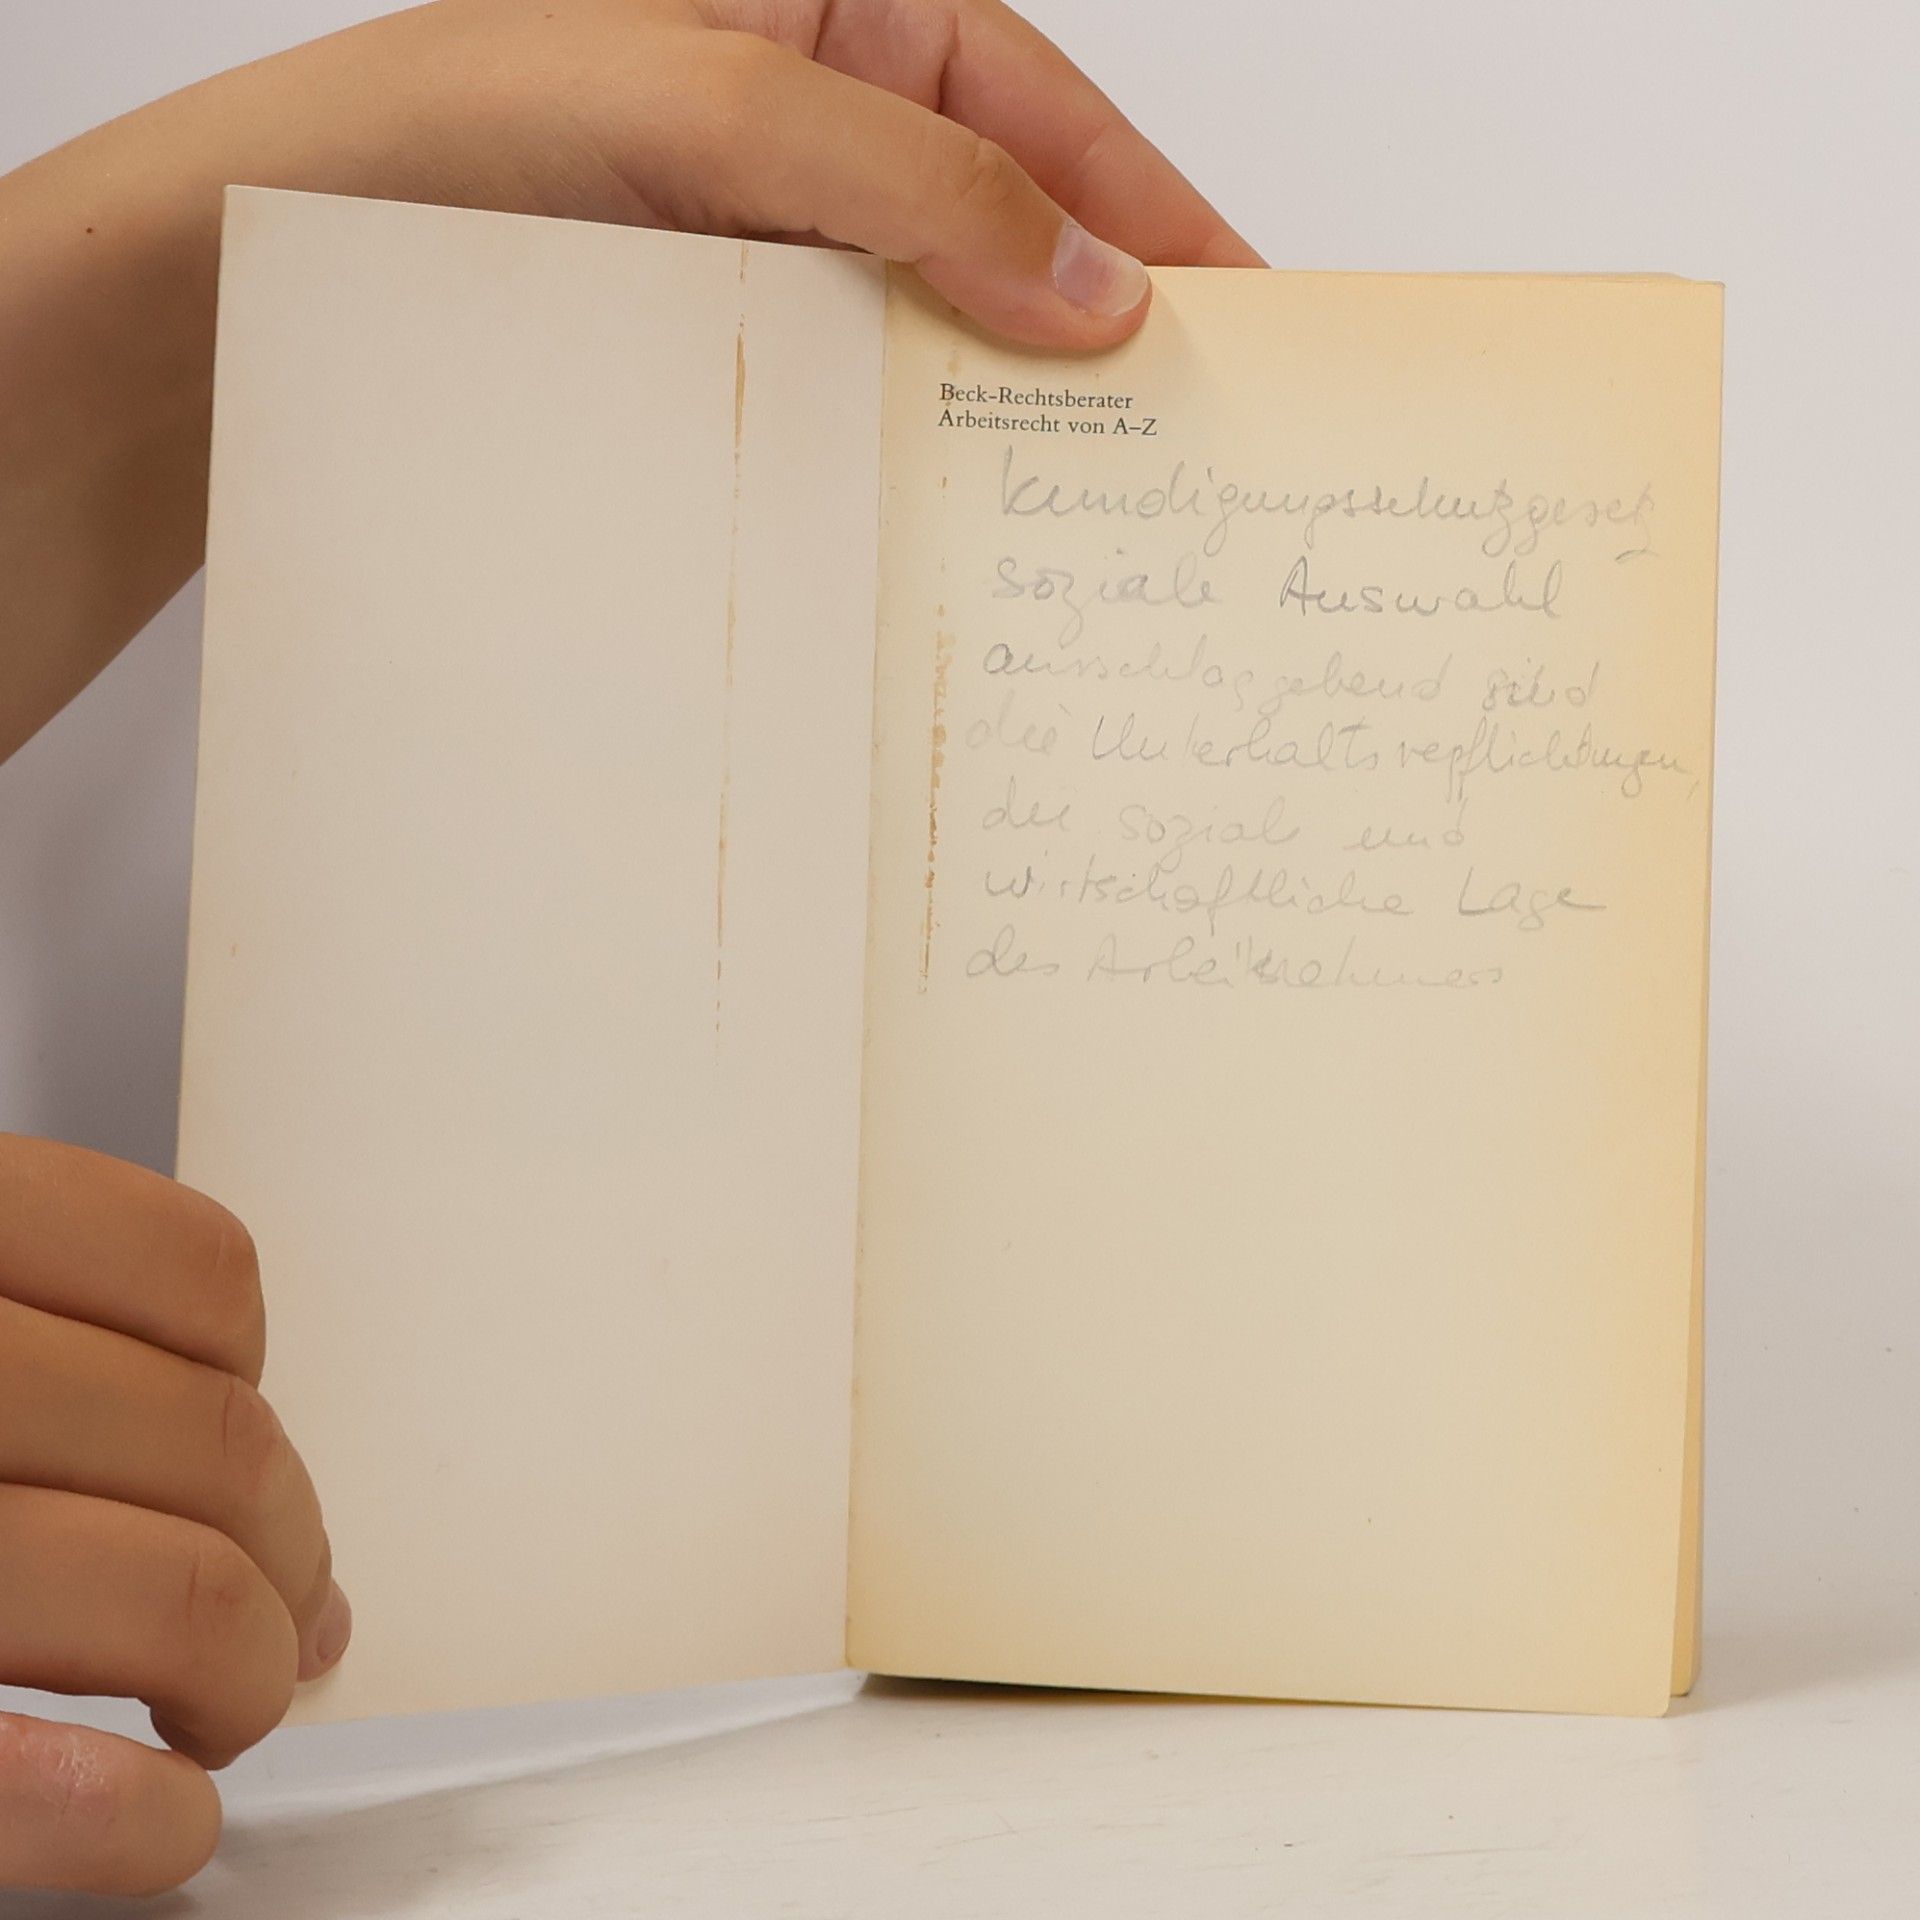 Beck-Rechtsberater
Arbeitsrecht von A–Z
Kundigungsschutzgesetz
soziale Auswahl
ausschlaggebend sind
die Unterhaltsverpflichtungen,
die soziale und
wirtschaftliche Lage
des Arbeitsnehmers